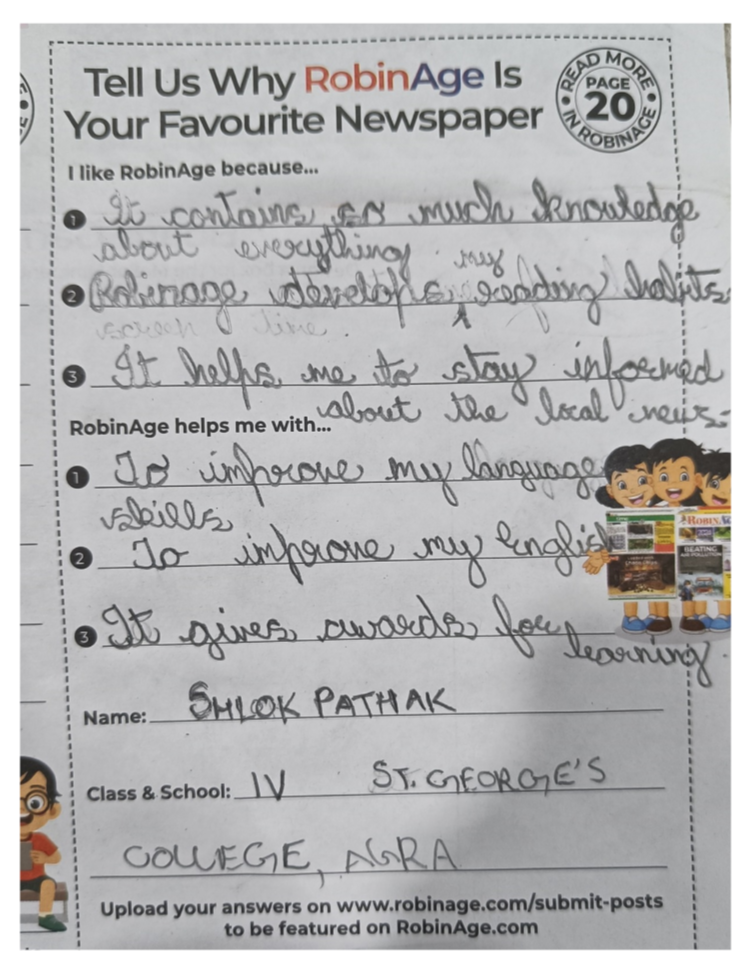 Tell Us Why RobinAge Is
Your Favourite Newspaper
READ MORE
PAGE
20
IN ROBINAGE
I like RobinAge because...
1 It contains so much knowledge
about everything
my
2 Robinage develops ^ reading habits
screen time.
3 It helps me to stay informed
about the local news.
RobinAge helps me with...
1 To improve my language
skills
2 To improve my English
3 It gives awards for
learning.
Name: SHLOK PATHAK
Class & School: IV ST. GEORGE'S
COLLEGE, AGRA
Upload your answers on www.robinage.com/submit-posts
to be featured on RobinAge.com